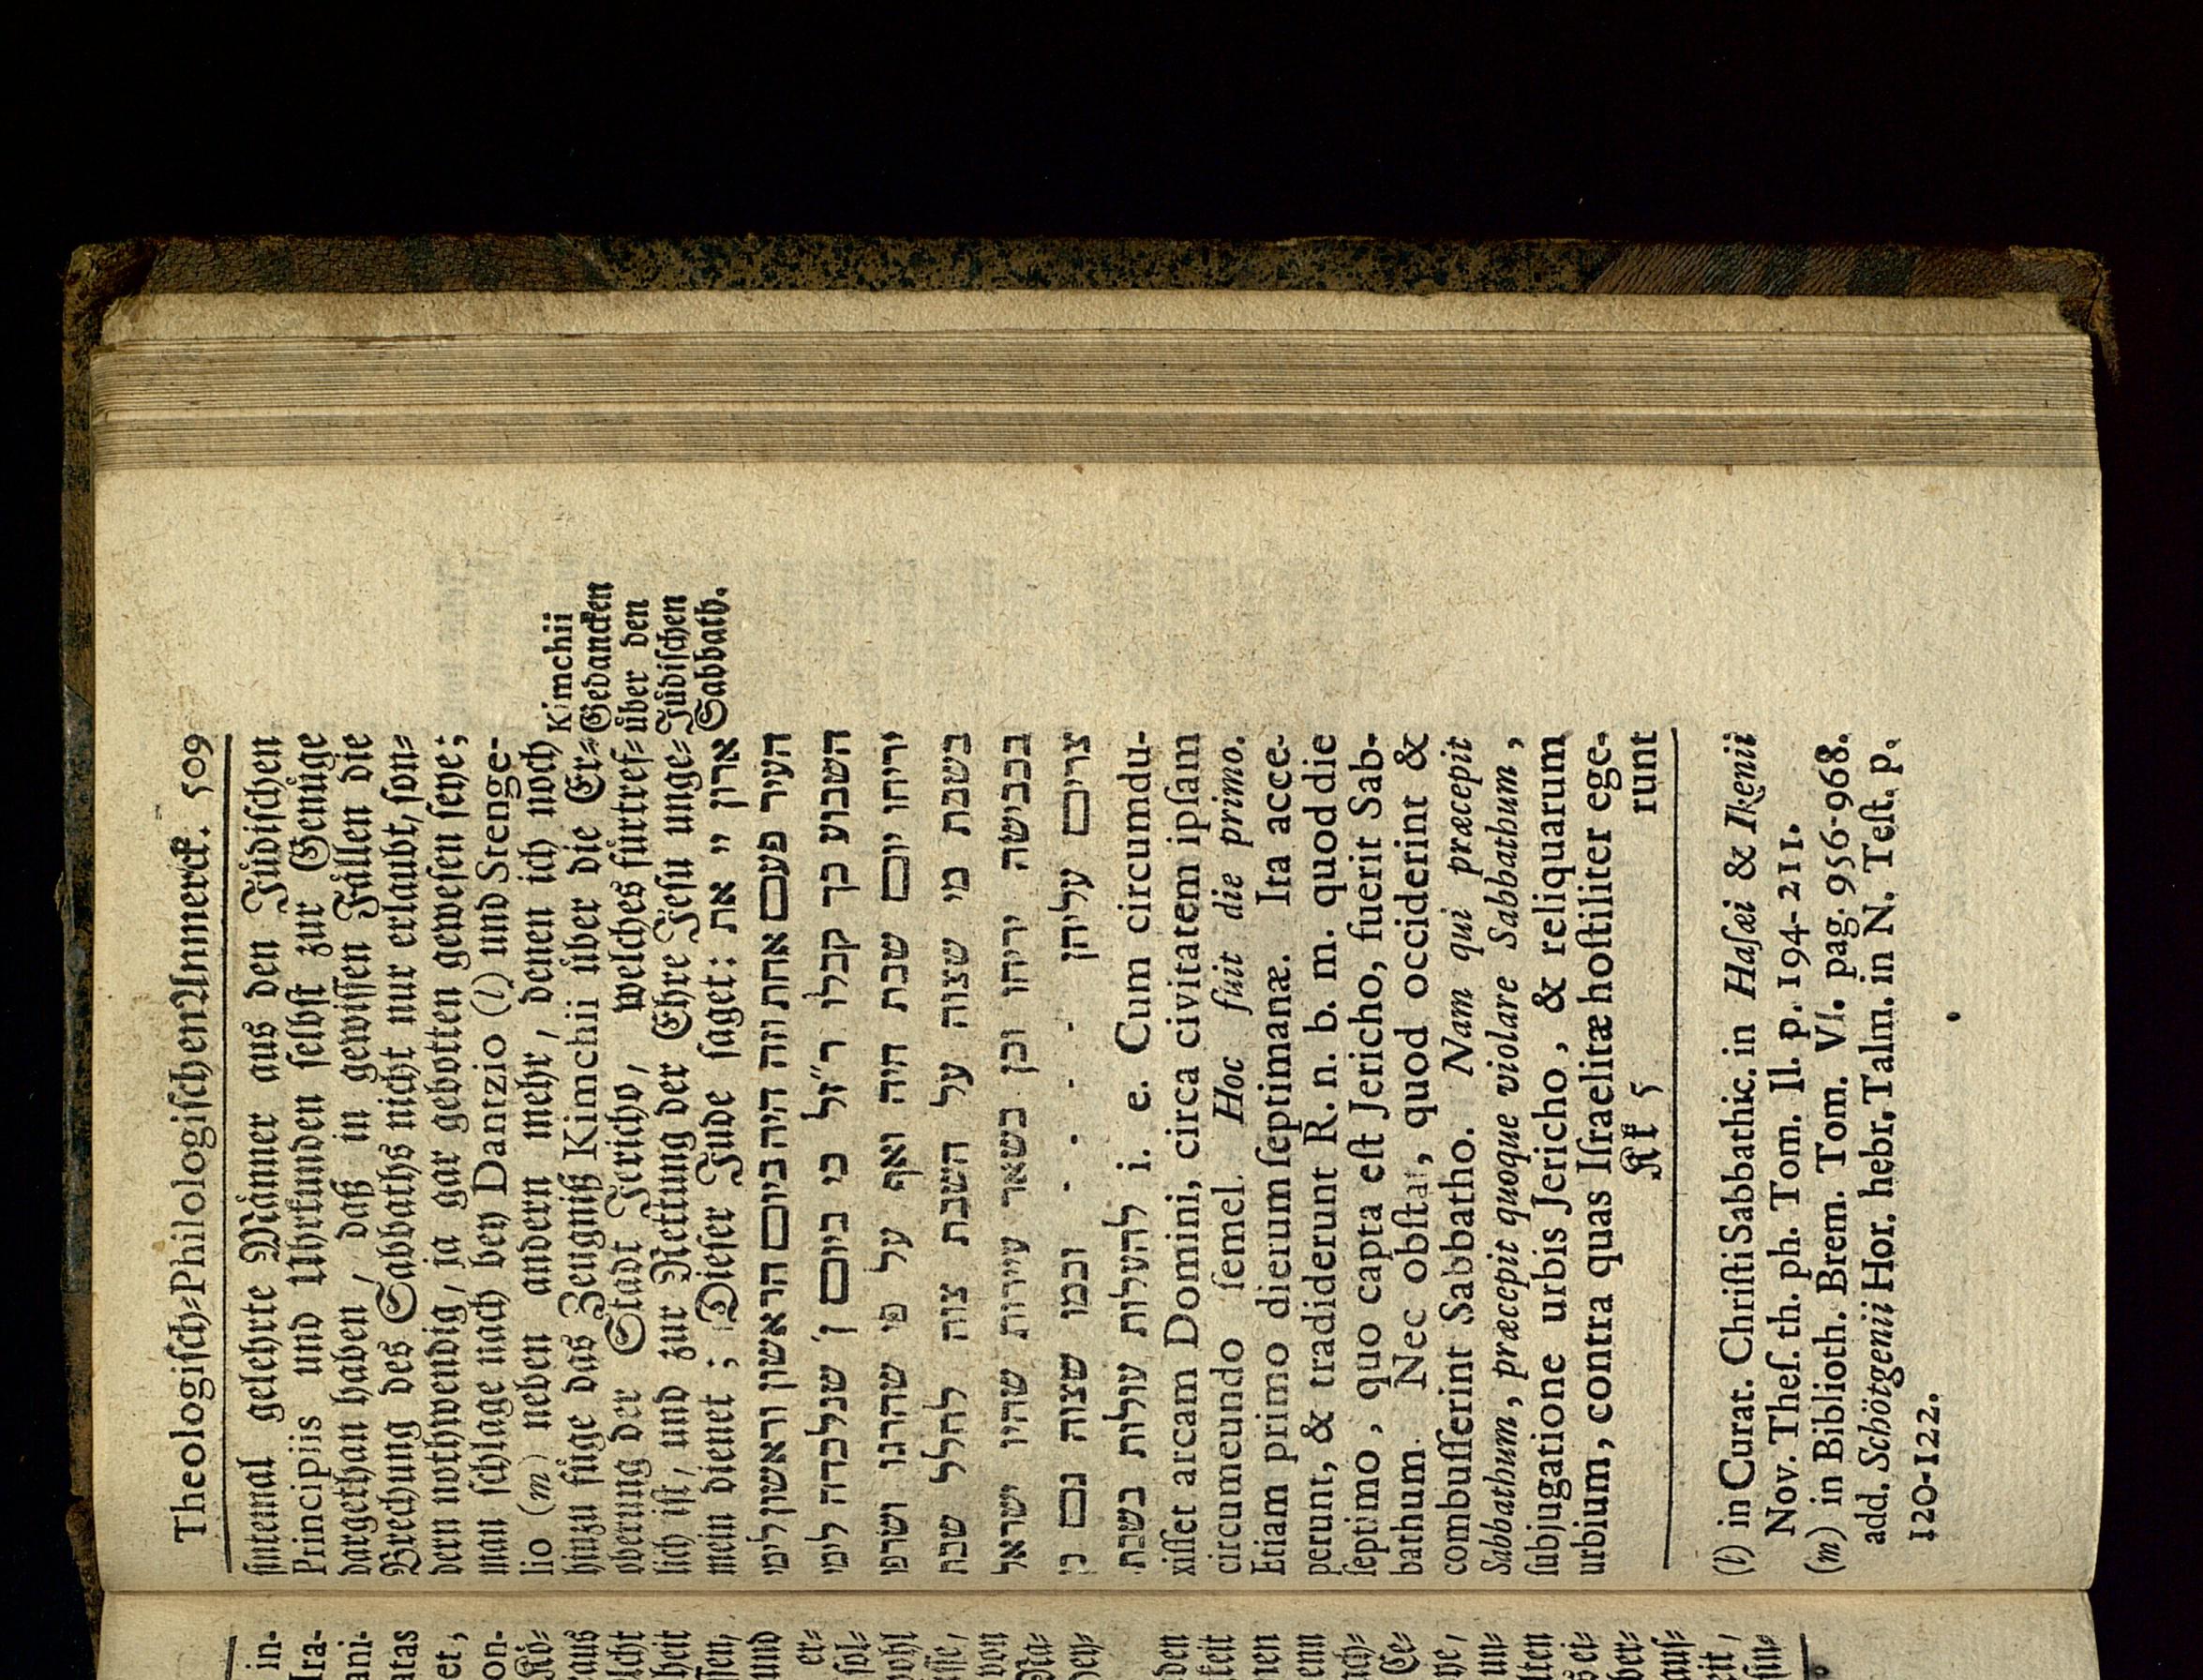 Theologisch-Philologischen Anmerck. 509
sintemal gelehrte Männer aus den Jüdischen
Principiis und Uhrkunden selbst zur Genüge
dargethan haben, daß in gewissen Fällen die
Brechung des Sabbaths nicht nur erlaubt, son-
dern nothwendig, ja gar gebotten gewesen seye;
man schlage nach bey Dantzio (l) und Strenge-
lio (m) neben andern mehr, denen ich noch
hinzu füge das Zeugniß Kimchii über die Er-
oberung der Stadt Jericho, welches fürtref-
lich ist, und zur Rettung der Ehre Jesu unge-
mein dienet; Dieser Jude saget: ארון יי את
Kimchii
Gedancken
über den
Jüdischen
Sabbath.
העיר פעם אחת וזה היה ביום הראשון וראשון לימי
השבוע כך קבלו ר״זל כי ביום ז׳ שנלכדה לימי
יריחו יום שבת היה ואף על פי שהרגו ושרפו
בשבת מי שצוה על השבת צוה לחלל שבת
בכבישה יריחו וכן בשאר עיירות שהיו ישראל
צרים עליהן - - - - וכמו שצוה גם כן
להעלות עולות בשבת. i. e. Cum circumdu-
xisset arcam Domini, circa civitatem ipsam
circumeundo semel. Hoc fuit die primo.
Etiam primo dierum septimanæ. Ita acce-
perunt, & tradiderunt R. n. b. m. quod die
septimo, quo capta est Jericho, fuerit Sab-
bathum. Nec obstat, quod occiderint &
combusserint Sabbatho. Nam qui præcepit
Sabbathum, præcepit quoque violare Sabbathum,
subjugatione urbis Jericho, & reliquarum
urbium, contra quas Israelitæ hostiliter ege-
Kk 5 runt
(l) in Curat. Christi Sabbathic. in Hasæi & Ikenii
Nov. Thes. th. ph. Tom. II. p. 194-211.
(m) in Biblioth. Brem. Tom. VI. pag. 956-968.
add. Schötgenii Hor. hebr. Talm. in N. Test. p.
120-122.